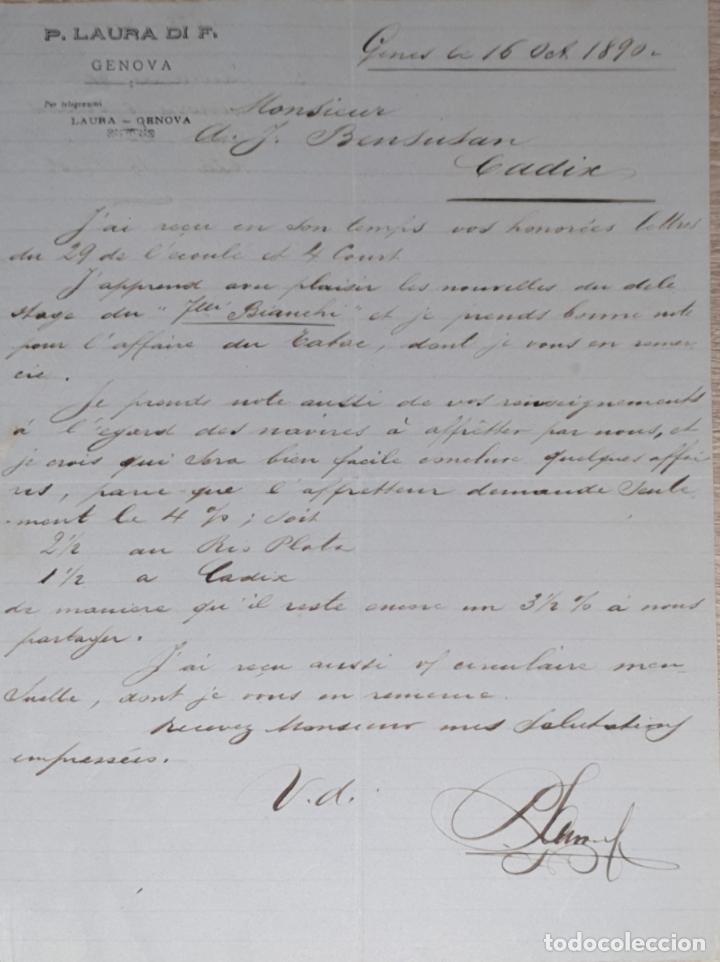 P. LAURA DI F.
GENOVA
Per telegrammi
LAURA - GENOVA
Genes le 16 Oct. 1890
Monsieur
A. J. Bensusan
Cadix
J'ai reçu en son temps vos honorées lettres
du 29 de l'écoulé et 4 Court
J'apprend avec plaisir les nouvelles du déle
stage du "Flli Bianchi" et je prends bonne note
pour l'affaire du Tabac, dont je vous en remer-
cie.
Je prends note aussi de vos renseignements
à l'égard des navires à affrêtter par nous, et
je crois qui sera bien facile conclure quelques affai
res, parce que l'affretteur demande seule
-ment le 4 %; soit
2½ au Rio Plata
1½ a Cadix
de manière qu'il reste encore un 3½ % à nous
partager.
J'ai reçu aussi v/ circulaire men-
suelle, dont je vous en remercie.
Recevez Monsieur mes salutations
empressées.
V. d.
todocoleccion
todocoleccion.net